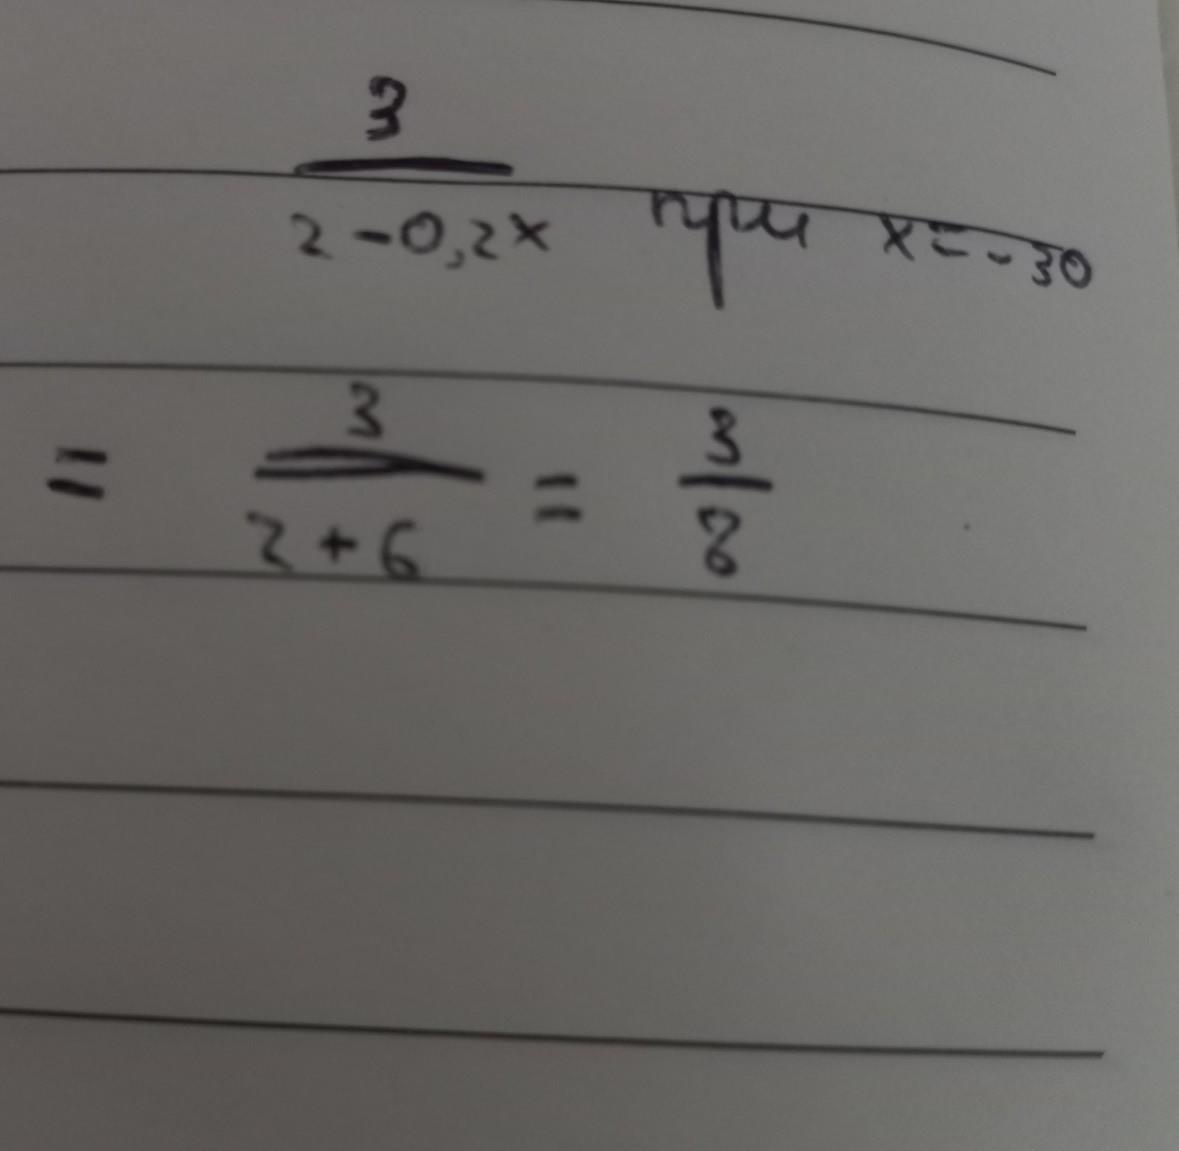 3
2 - 0,2x при x = -30
= 3/(2 + 6) = 3/8